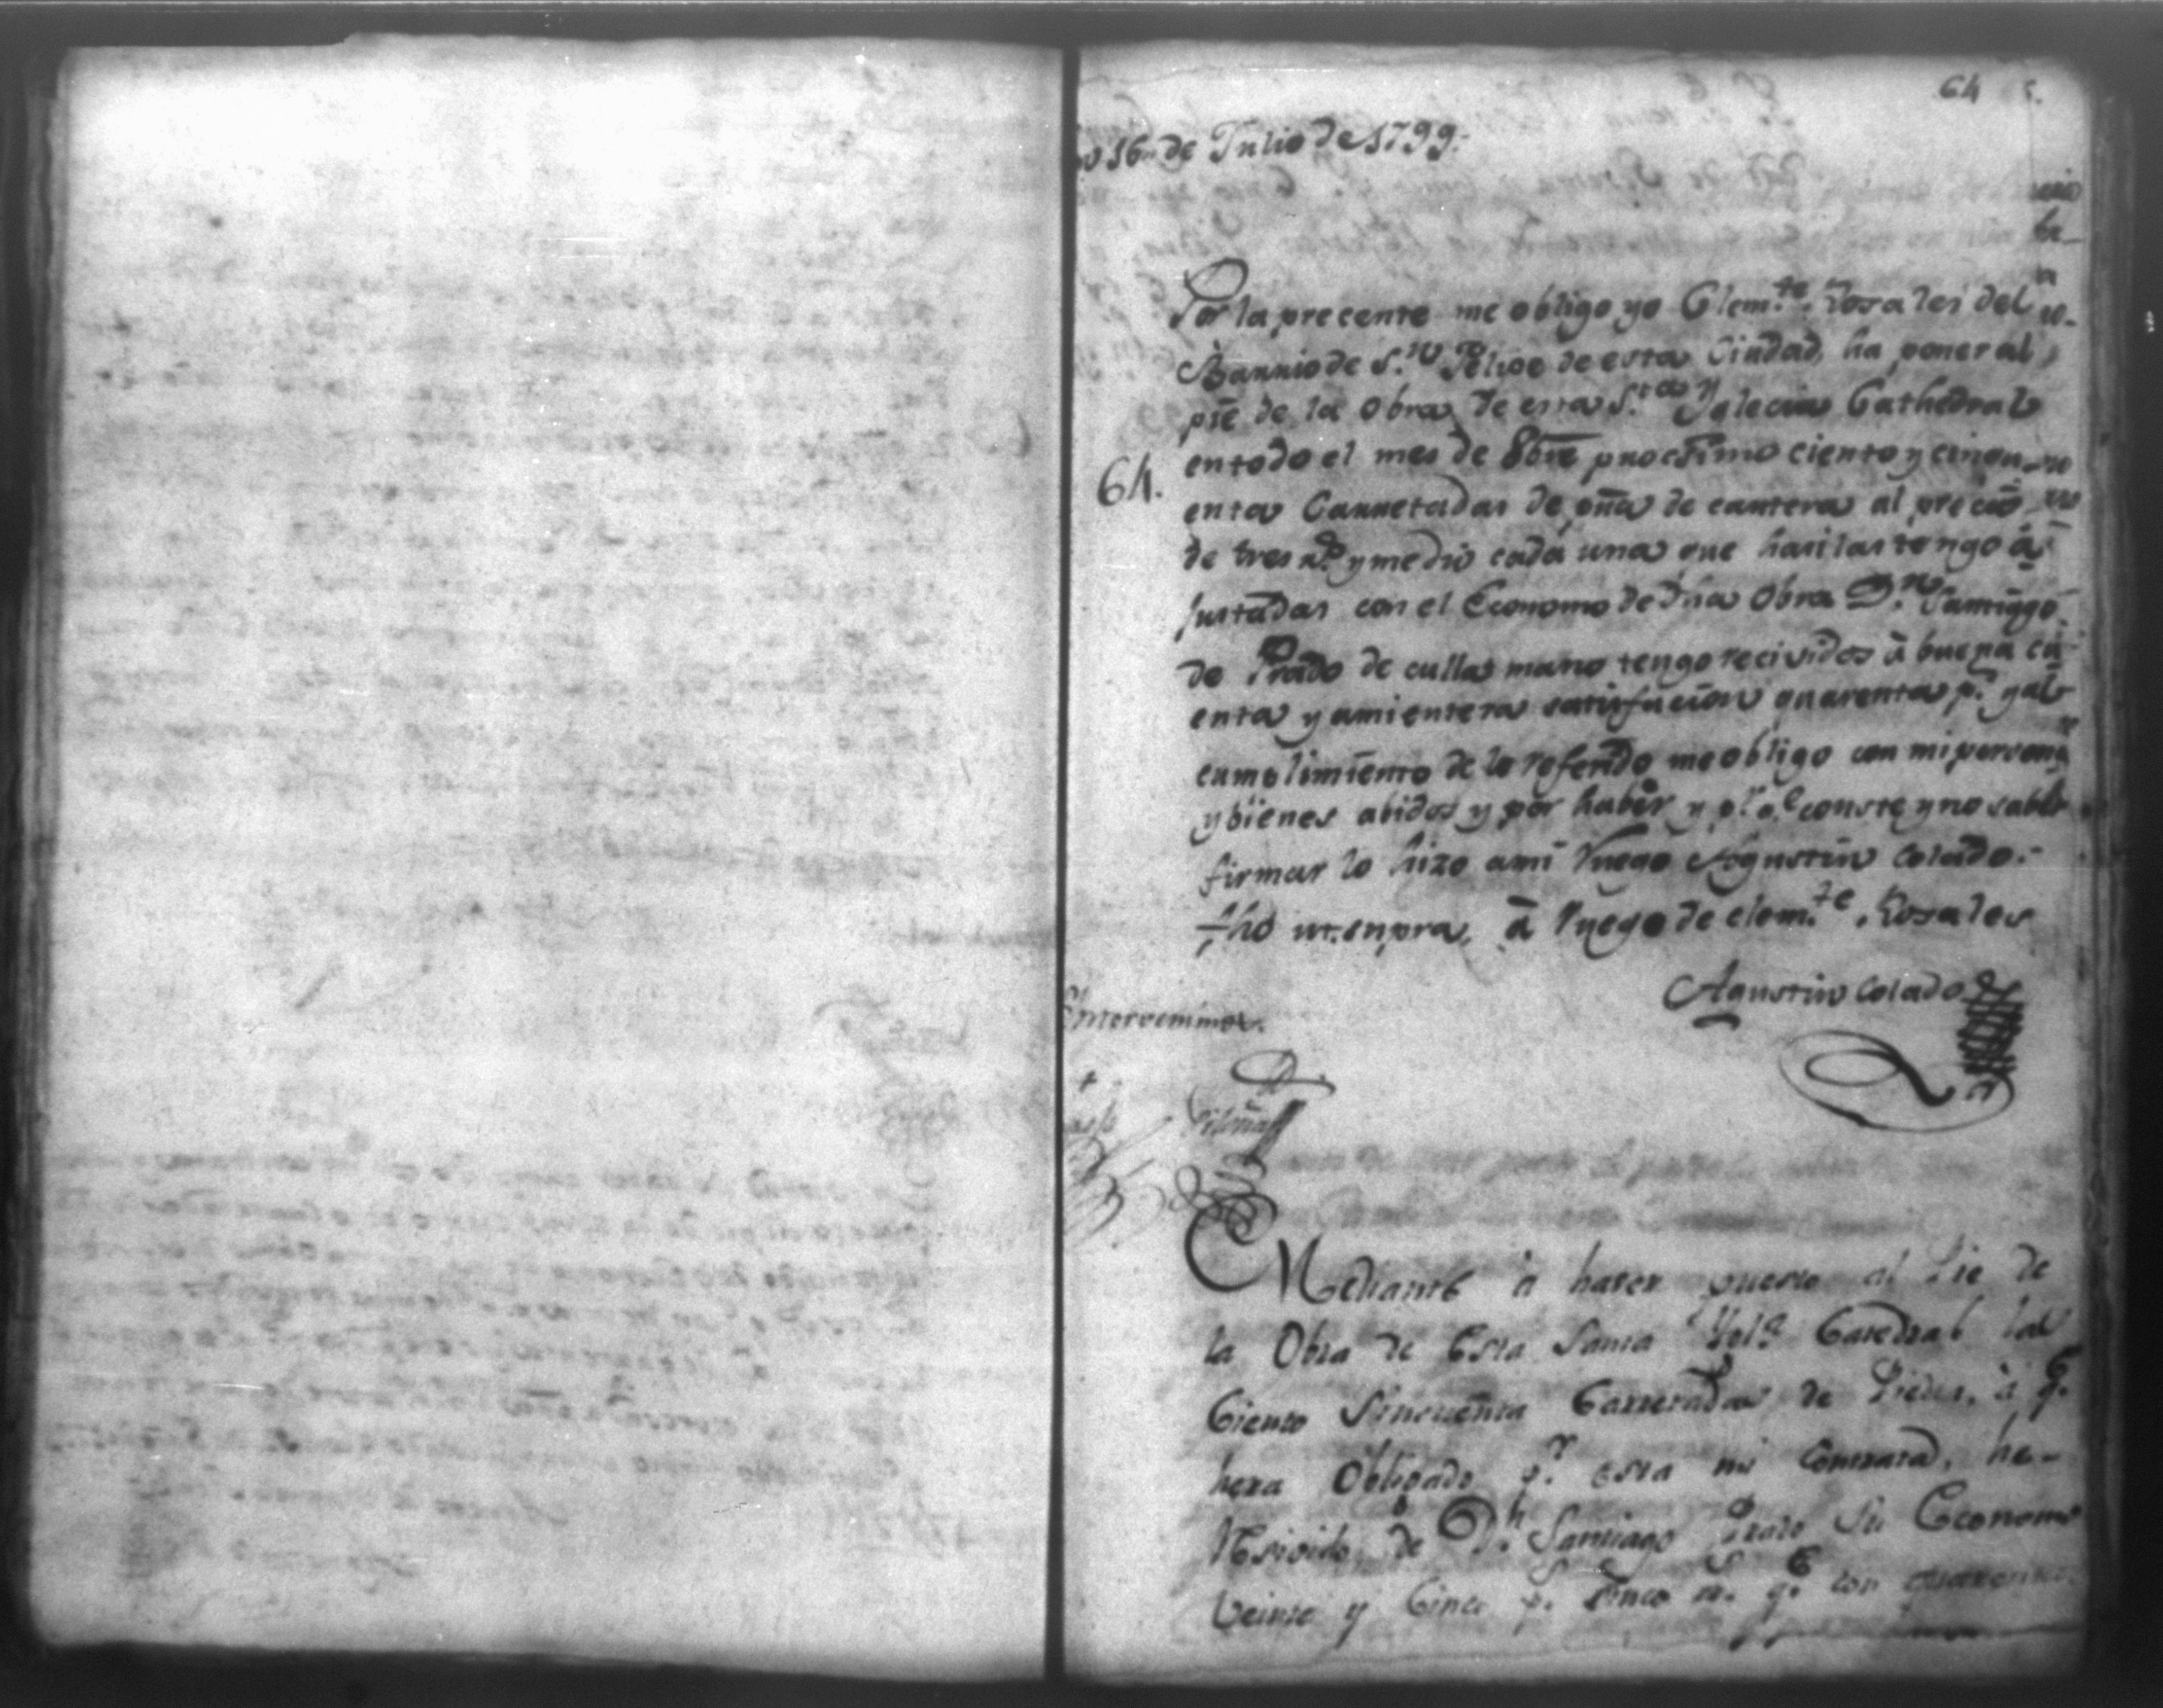 64
16 de Julio de 1799.
Por la precente me obligo yo Clem.te Rosales del
Barrio de S.n Pelipe de esta Ciudad, ha poner al
pie de la Obra de esta S.ta Yglecia Cathedral
en todo el mes de 8bre procsimo ciento y cinqu
64.
enta Carretadas de pña de cantera al precio
de tres r.s y medio cada una que hasi las tengo á
justadas con el Economo de dha Obra D.n Santiago
de Prado de cullas mano tengo recividos á buena cu
enta y a mi entera satisfacion quarenta p.s y al
cumplimiento de lo referido me obligo con mi persona
y bienes abidos y por haber y p.a q.e conste y no saber
firmar lo hizo a mi Ruego Agustin Colado.
Fho ut supra, á Ruego de Clem.te Rosales
Agustin Colado
Yntervenimos.
Mediante á haver puesto al Pie de
la Obra de Esta Santa Ygl.a Catedral las
Ciento Sincuenta Carretadas de Piedra, á q.e
hera Obligado p.r esta mi Contrata, he
Resivido de D.n Santiago Prado Su Economo
Veinte y Cinco p.s Sinco r.s q.e con quarenta